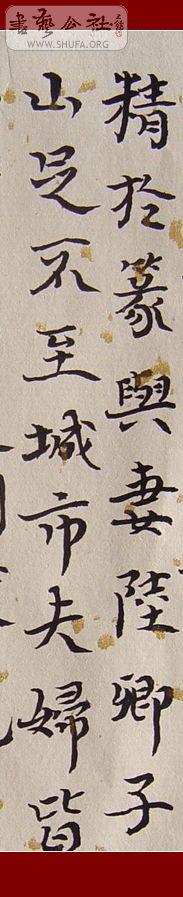 書藝公社
WWW.SHUFA.ORG
精於篆與妻陸卿子
山足不至城市夫婦皆